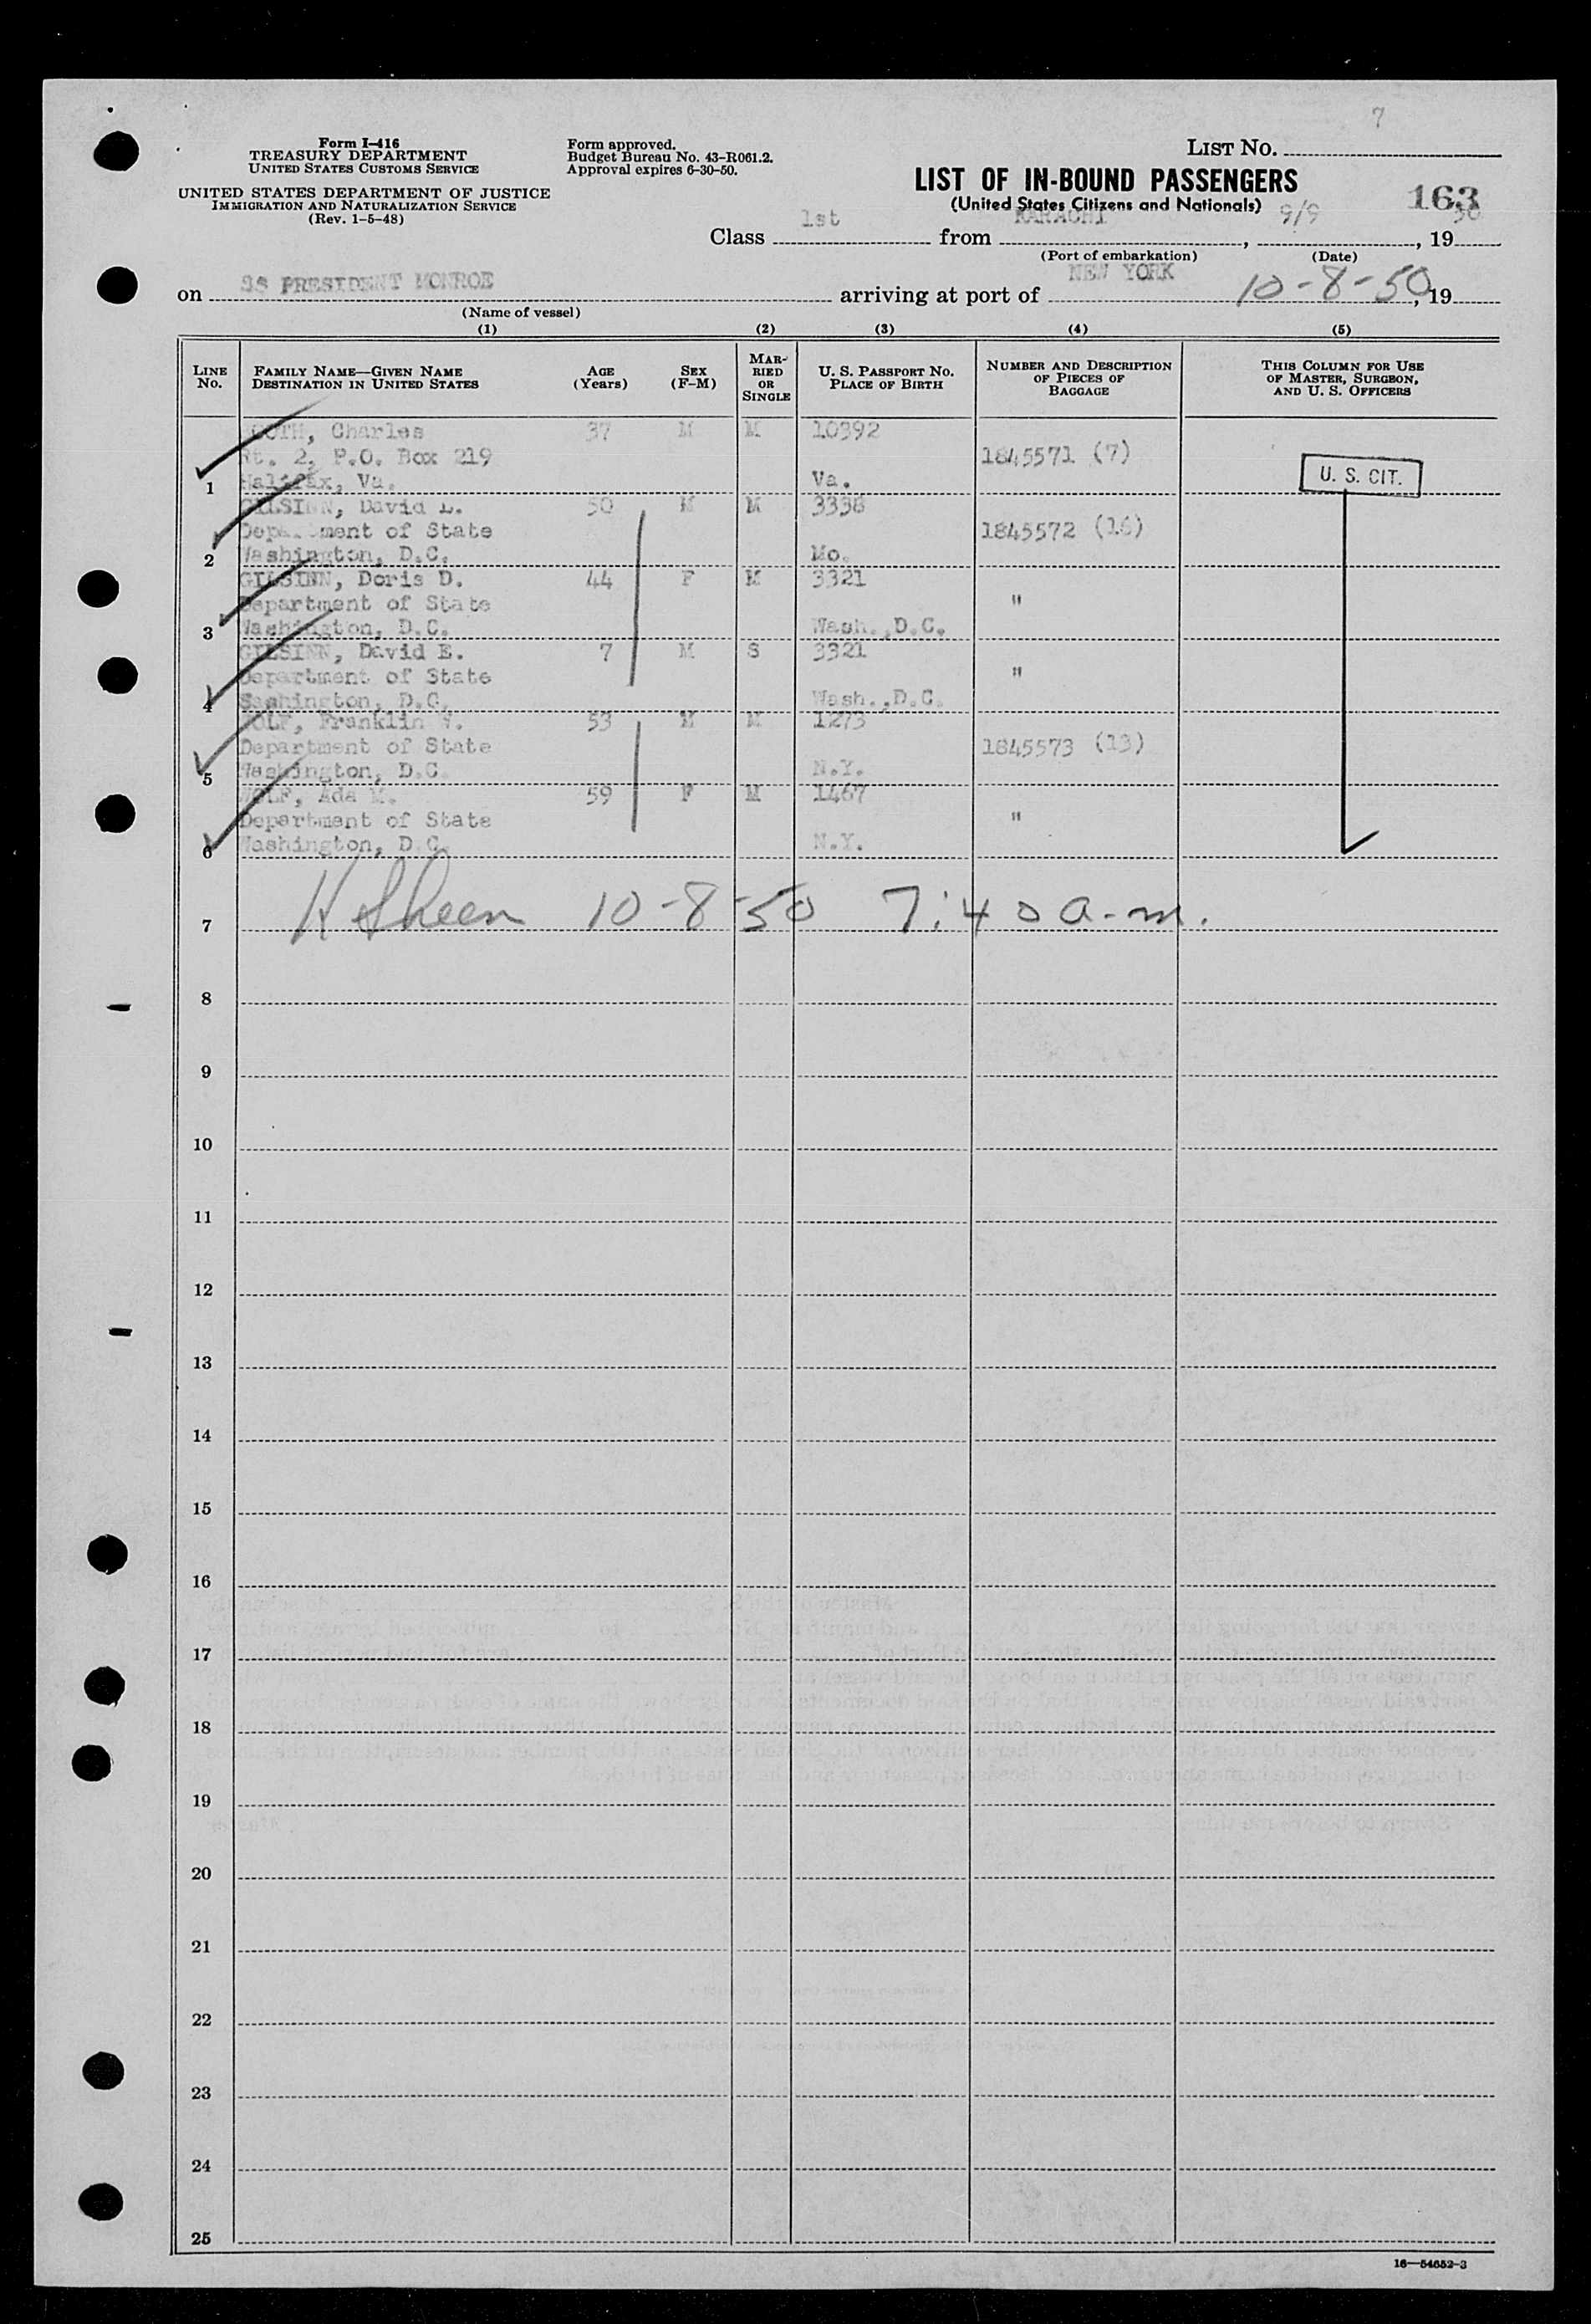 7
Form I-416
TREASURY DEPARTMENT
UNITED STATES CUSTOMS SERVICE
UNITED STATES DEPARTMENT OF JUSTICE
IMMIGRATION AND NATURALIZATION SERVICE
(Rev. 1-5-48)
Form approved.
Budget Bureau No. 43-R061.2.
Approval expires 6-30-50.
LIST NO.
LIST OF IN-BOUND PASSENGERS
(United States Citizens and Nationals)
163
Class 1st from KARACHI, 9/9, 1950
(Port of embarkation) (Date)
on SS PRESIDENT MONROE arriving at port of NEW YORK 10-8-50, 19
(Name of vessel)
(1) (2) (3) (4) (5)
LINE NO. FAMILY NAME—GIVEN NAME DESTINATION IN UNITED STATES AGE (Years) SEX (F-M) MARRIED OR SINGLE U. S. PASSPORT NO. PLACE OF BIRTH NUMBER AND DESCRIPTION OF PIECES OF BAGGAGE THIS COLUMN FOR USE OF MASTER, SURGEON, AND U. S. OFFICERS
Charles 37 M M 10392
Rt. 2, P.O. Box 219 1845571 (7)
1 Halifax, Va. Va. U. S. CIT.
GILSINN, David L. 50 M M 3338
Department of State 1845572 (16)
2 Washington, D.C. Mo.
GILSINN, Doris D. 44 F M 3321
Department of State "
3 Washington, D.C. Wash., D.C.
GILSINN, David E. 7 M S 3321
Department of State "
4 Washington, D.C. Wash., D.C.
WOLF, Franklin W. 53 M M 1273
Department of State 1845573 (13)
5 Washington, D.C. N.Y.
WOLF, Ada M. 59 F M 1467
Department of State "
6 Washington, D.C. N.Y.
7 H Sheen 10-8-50 7:40 a.m.
8
9
10
11
12
13
14
15
16
17
18
19
20
21
22
23
24
25
16—54652-3